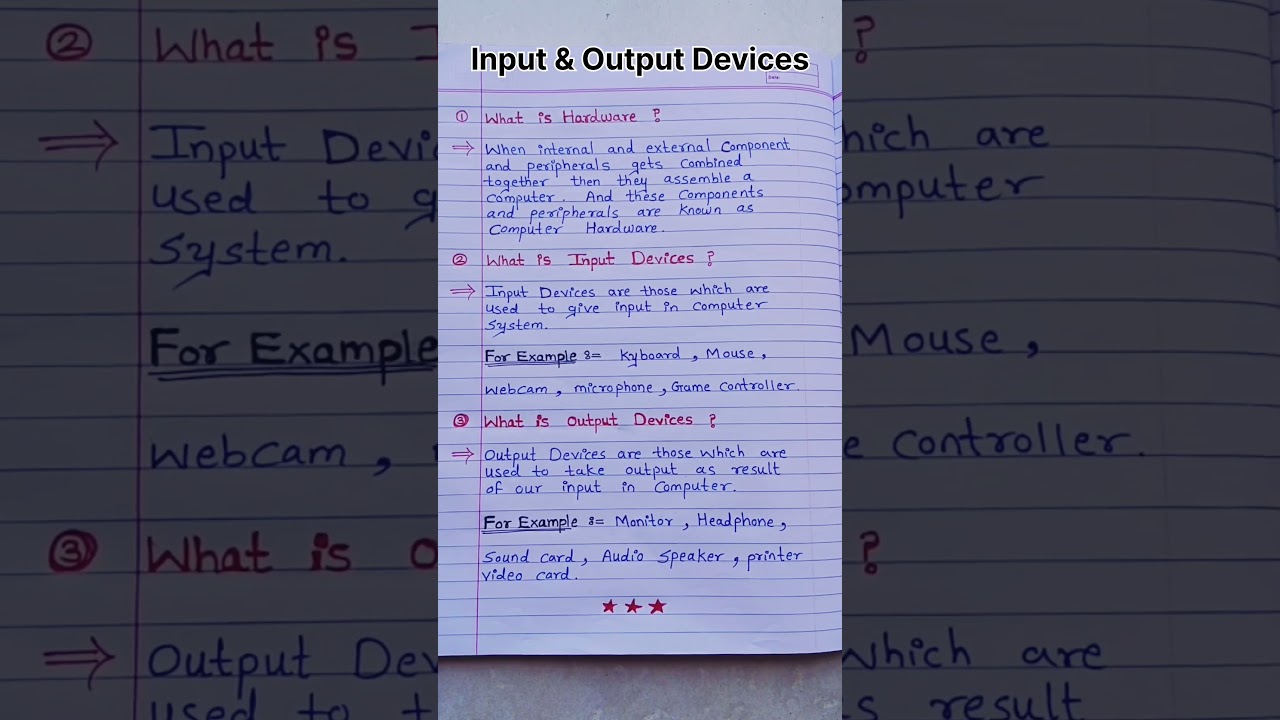 Input & Output Devices
Date:
① What is Hardware ?
⇒ When internal and external Component
and peripherals gets combined
together then they assemble a
Computer. And these Components
and peripherals are known as
Computer Hardware.
② What is Input Devices ?
⇒ Input Devices are those which are
used to give input in Computer
System.
For Example := Kyboard, Mouse,
Webcam, microphone, Game Controller.
③ What is Output Devices ?
⇒ Output Devices are those which are
used to take output as result
of our input in Computer.
For Example := Monitor, Headphone,
Sound card, Audio Speaker, printer
video card.
② What is I
?
⇒ Input Devic
hich are
used to g
omputer
System.
For Example
Mouse,
Webcam,
e Controller.
③ What is O
?
⇒ Output Dev
which are
used to t
s result